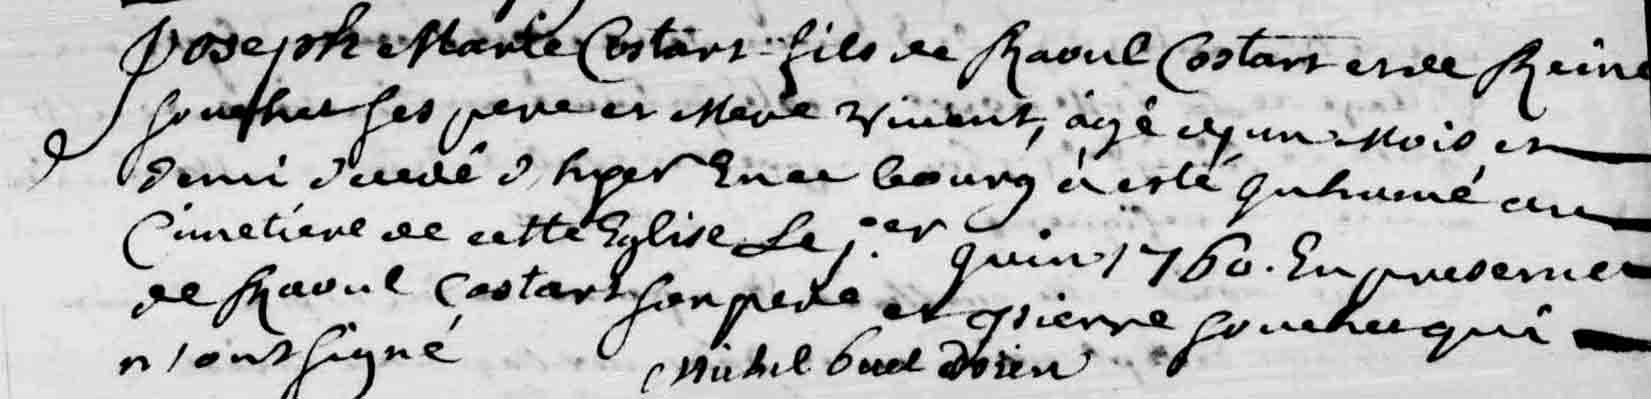 Joseph Marie Costart fils de Raoul Costart et de Reine
Gouchet ses pere et Mere vivent, agé d'un Mois et
demi decedé d'hyer En ce bourg à esté ynhumé au
Cimetiere de cette Eglise Le j.er Juin 1760. En presence
de Raoul Costart son pere et Pierre Gouchet qui
n'ont signé
Michel